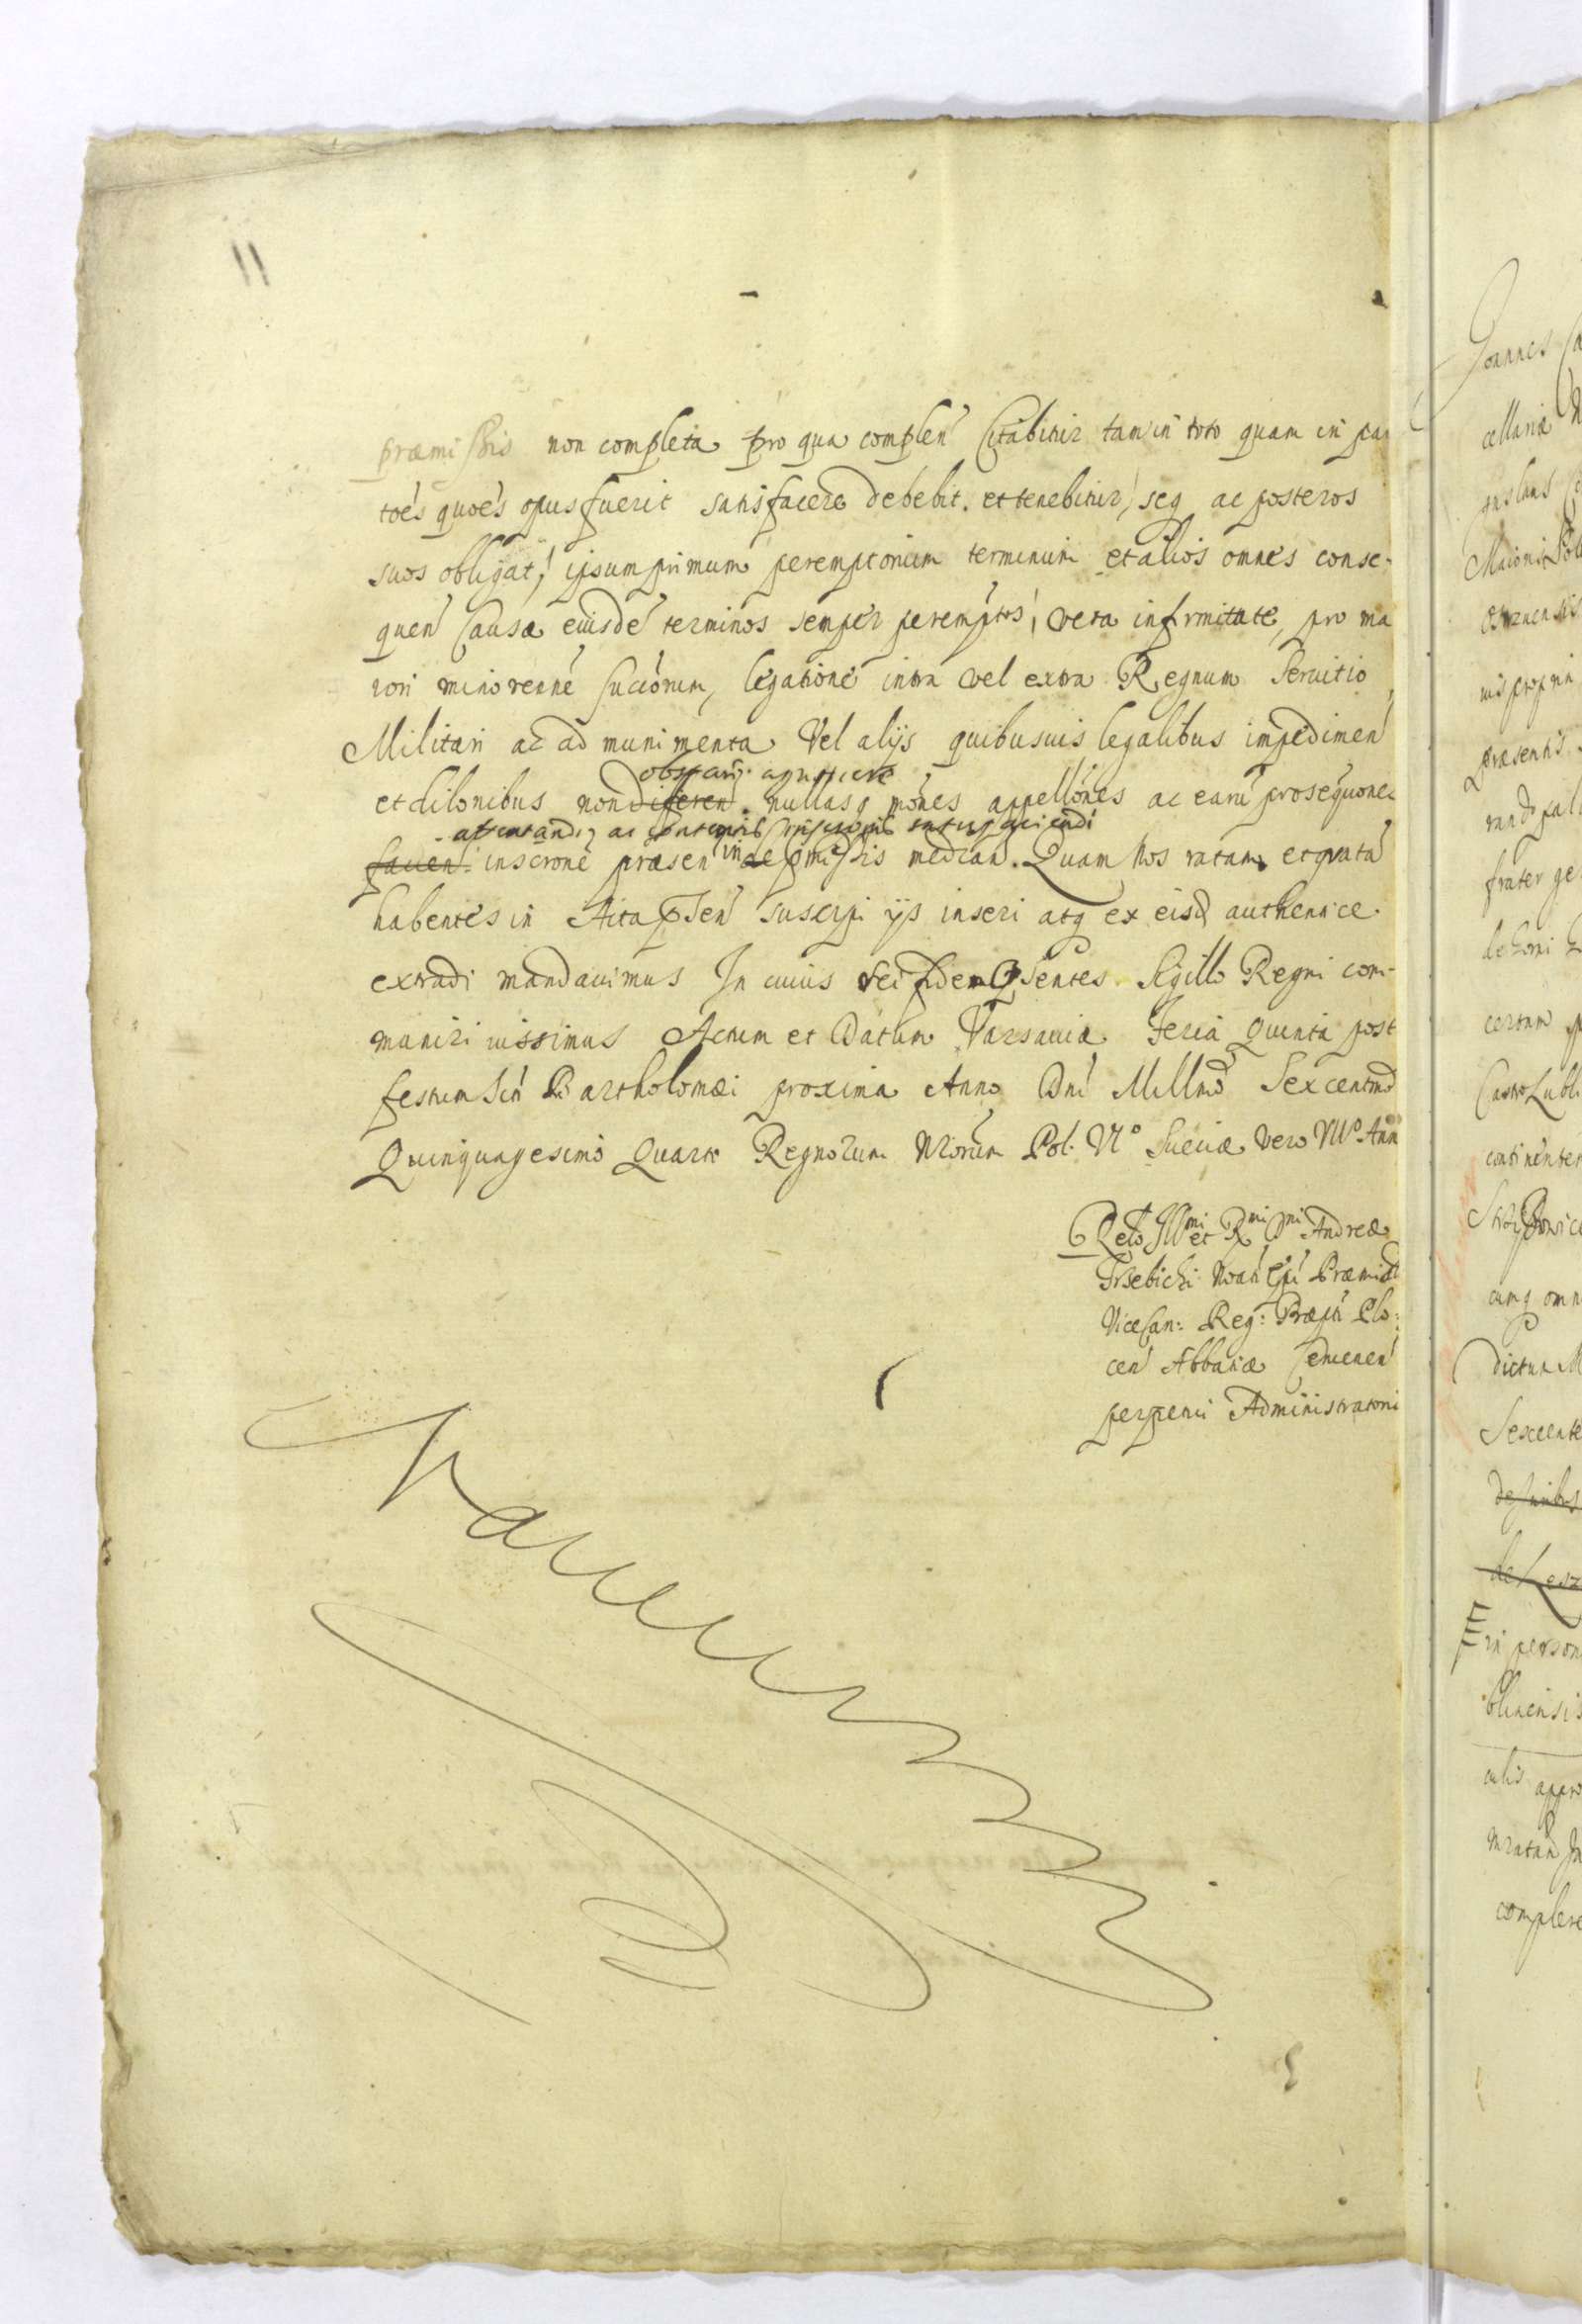 11
præmissis non completa pro qua complen Citabitur tam in toto quam in par
toés quoés opus fuerit satisfacere debebit et tenebitur, seq ac posteros
suos obligat, ipsum primum peremptorium terminum et alios omnes conse-
quen Causæ eiusdé terminos semper peremptos, vera infirmitate, pro ma
iori minorenné sucórum, legationé intra vel extra Regnum Seruitio
Militari ac ad munimenta vel alijs quibusuis legalibus impedimen
et dilonibus non differen nullasq mónes appellónes ac earú prosequónes
attentandi, ac satisfaciendi
fauen inscroné præsen in præmissis median. Quam Nos ratam et gratá
habentes in Acta psen suscepi ijs inseri atq ex eisd authentice
extradi mandauimus In cuius rei fidem psentes Sigillo Regni com-
muniri iussimus Actum et Datum Varsauiæ Feria Quinta post
festum Sti Bartholomæi proxima Anno Dni Millmo Sexcentmo
Quinquagesimo Quarto Regnorum Nrorum Pol. VIº Sueciæ vero VIIº Ann
Relo Illmi et Rmi Dni Andreæ
Trzebicki Noati Epi Præmisl
ViceCan: Reg: Præpti Plo-
cen Abbatiæ
perpetui Administratoris
Joannes Ca
cellariæ
Maioris Pol
præsentis
frater ge
certum
Castro Lubli
continenter
cumq omn
dictum M
Sexcente
de Lesz
in person
blinensis
complere